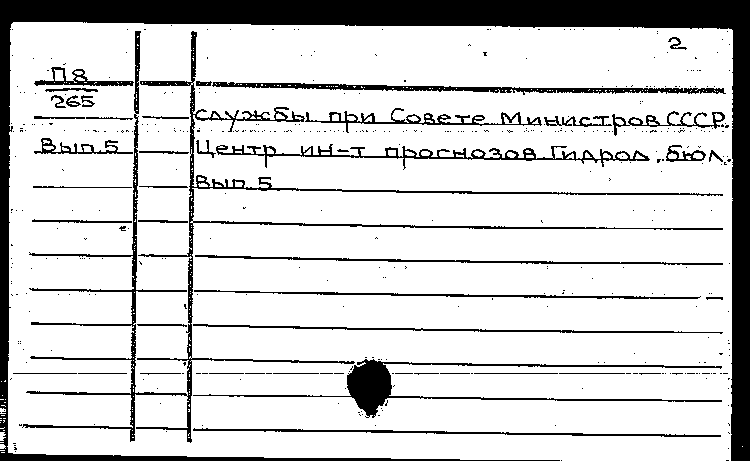 2
П8
265
службы при Совете Министров СССР.
Вып.5
Центр. ин-т прогнозов. Гидрол. бюл.
Вып. 5